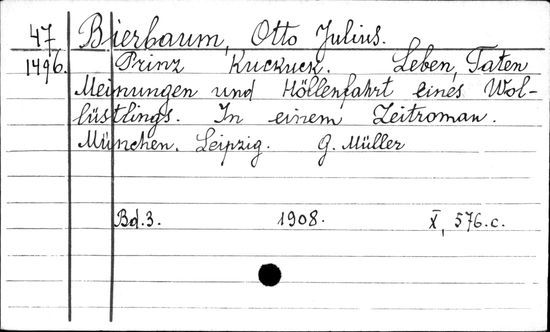 47 Bierbaum, Otto Julius.
1496. Prinz Kuckuck. Leben, Taten
Meinungen und Höllenfahrt eines Wol-
lüstlings. In einem Zeitroman.
München. Leipzig. G. Müller
Bd.3. 1908. X, 576.c.